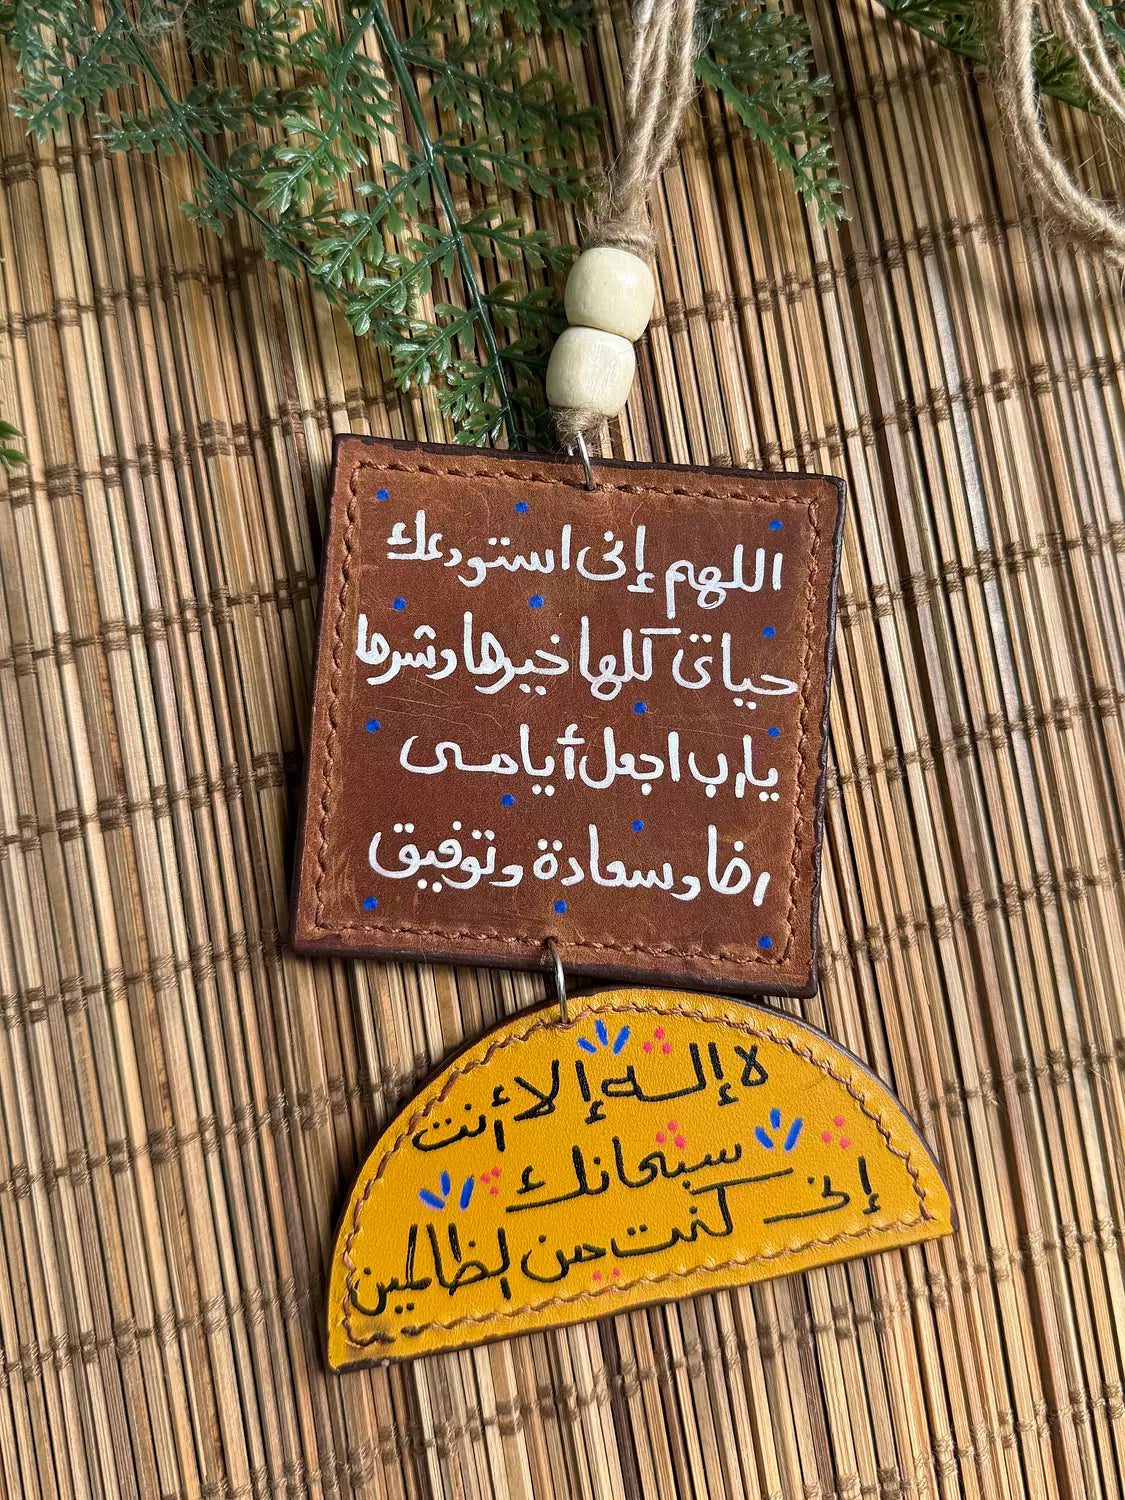 اللهم إنى استودعك
حياتى كلها خيرها وشرها
يارب اجعل أيامى
رضا وسعادة وتوفيق
لا إله إلا أنت
سبحانك
إنى كنت من الظالمين